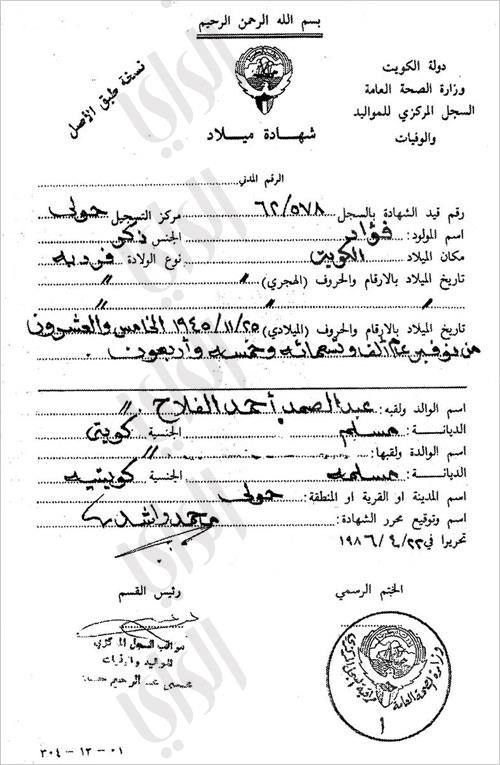 بسم الله الرحمن الرحيم
دولة الكويت
وزارة الصحة العامة
السجل المركزي للمواليد
والوفيات
نسخة طبق الأصل
شهادة ميلاد
الرقم المدني
رقم قيد الشهادة بالسجل ٦٢/٥٧٨ مركز التسجيل حولي
اسم المولود: فؤاد الجنس ذكر
مكان الميلاد الكويت نوع الولادة فرديه
تاريخ الميلاد بالارقام والحروف (الهجري) " "
" "
تاريخ الميلاد بالارقام والحروف (الميلادي) ١٩٤٥/١١/٢٥ الخامس والعشرون
من نوفمبر عام ألف وتسعمائه وخمسه وأربعون
اسم الوالد ولقبه: عبدالصمد أحمد الفلاح "
الديانة: مسلم الجنسية كويتي
اسم الوالدة ولقبها: "
الديانة: مسلمه الجنسية كويتيه
اسم المدينة او القرية او المنطقة: حولي
اسم وتوقيع محرر الشهادة: محمد راشد
تحريرا في ١٩٨٦/٤/٢٢
الختم الرسمي
رئيس القسم
مراقب السجل المركزي
للمواليد والوفيات
وزارة الصحة العامة
١
٣٠٤ – ١٢ – ٠١
الراي
الراي
الراي
الراي